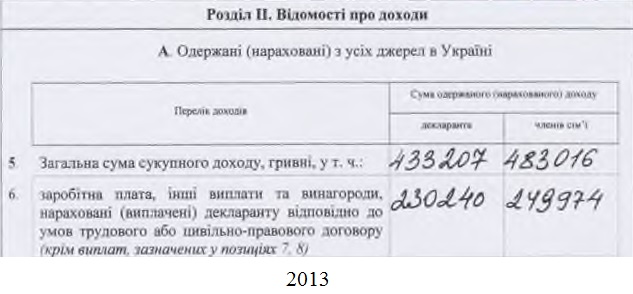 Розділ II. Відомості про доходи
А. Одержані (нараховані) з усіх джерел в Україні
Перелік доходів
Сума одержаного (нарахованого) доходу
декларанта
членів сім'ї
5. Загальна сума сукупного доходу, гривні, у т. ч.: 433207 483016
6. заробітна плата, інші виплати та винагороди, 230240 249974
нараховані (виплачені) декларанту відповідно до
умов трудового або цивільно-правового договору
(крім виплат, зазначених у позиціях 7, 8)
2013